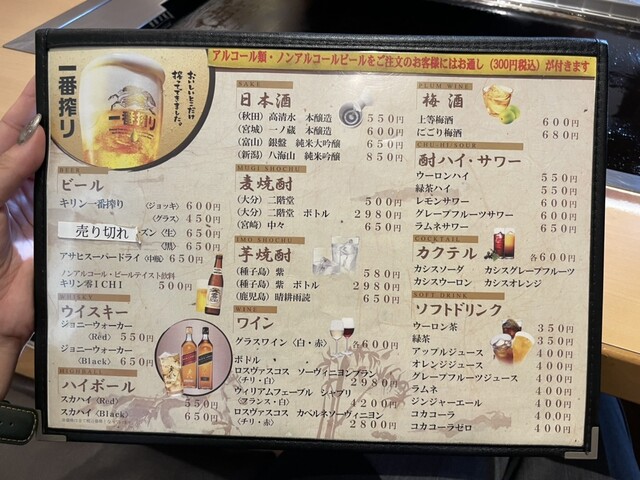 アルコール類・ノンアルコールビールをご注文のお客様にはお通し（300円税込）が付きます
一番搾り
おいしいとこだけ
搾ってできました。
一番搾り
BEER
ビール
キリン一番搾り 〈ジョッキ〉 600円
〈グラス〉 450円
売り切れ
ズン 〈生〉 650円
〈黒〉 650円
アサヒスーパードライ 〈中瓶〉 650円
ノンアルコール・ビールテイスト飲料
キリン零ICHI 500円
WHISKY
ウイスキー
ジョニーウォーカー
〈Red〉 550円
ジョニーウォーカー
〈Black〉 650円
HIGHBALL
ハイボール
スカハイ〈Red〉 550円
スカハイ〈Black〉 650円
SAKE
日本酒
(秋田) 高清水 本醸造 550円
(宮城) 一ノ蔵 本醸造 600円
(富山) 銀盤 純米大吟醸 650円
(新潟) 八海山 純米吟醸 850円
MUGI SHOCHU
麦焼酎
(大分) 二階堂 500円
(大分) 二階堂 ボトル 2980円
(宮崎) 中々 650円
IMO SHOCHU
芋焼酎
(種子島) 紫 580円
(種子島) 紫 ボトル 2980円
(鹿児島) 晴耕雨読 650円
WINE
ワイン
グラスワイン〈白・赤〉 各600円
ボトル
ロスヴァスコス ソーヴィニヨンブラン
〈チリ・白〉 2980円
ウィリアムフェーブル シャブリ
〈フランス・白〉 4200円
ロスヴァスコス カベルネソーヴィニヨン
〈チリ・赤〉 2800円
PLUM WINE
梅酒
上等梅酒 600円
にごり梅酒 680円
CHU-HI/SOUR
酎ハイ・サワー
ウーロンハイ 550円
緑茶ハイ 550円
レモンサワー 600円
グレープフルーツサワー 600円
ラムネサワー 650円
COCKTAIL
カクテル 各600円
カシスソーダ カシスグレープフルーツ
カシスウーロン カシスオレンジ
SOFT DRINK
ソフトドリンク
ウーロン茶 350円
緑茶 350円
アップルジュース 400円
オレンジジュース 400円
グレープフルーツジュース 400円
ラムネ 400円
ジンジャーエール 400円
コカコーラ 400円
コカコーラゼロ 400円